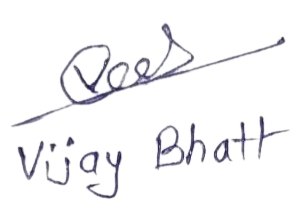 Vijay Bhatt